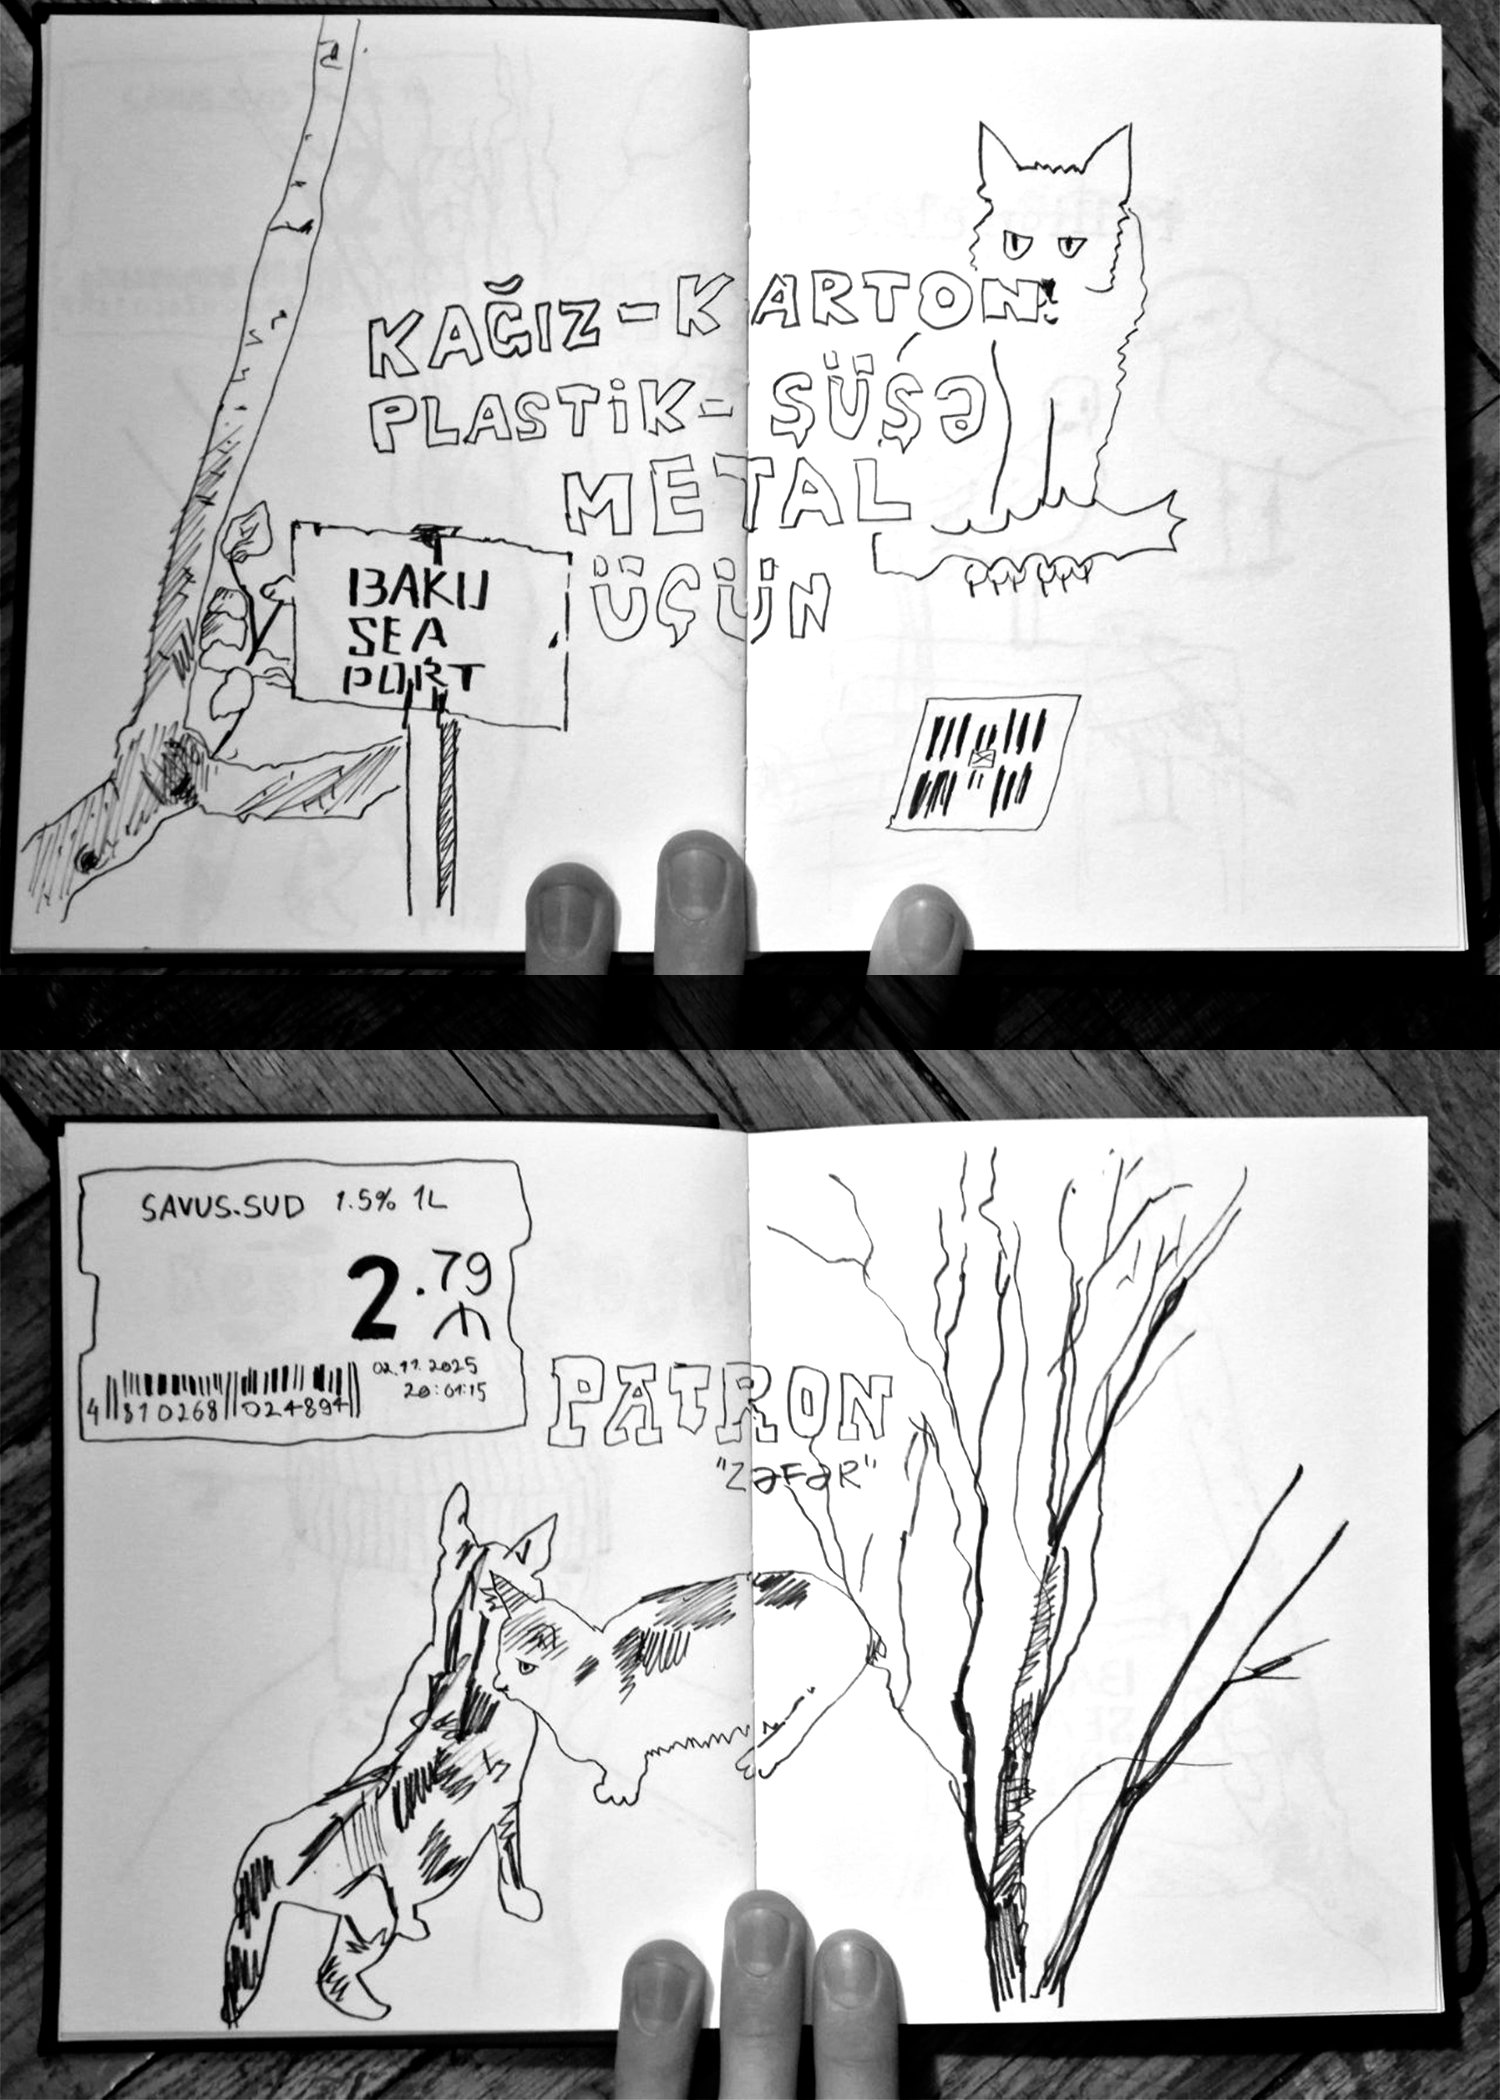 KAĞIZ-KARTON
PLASTİK-ŞÜŞƏ
METAL
ÜÇÜN
BAKU
SEA
PORT
SAVUS.SUD 1.5% 1L
2.79
₼
02.11.2025
20:01:15
4 810268 024894
PATRON
"ZƏFƏR"